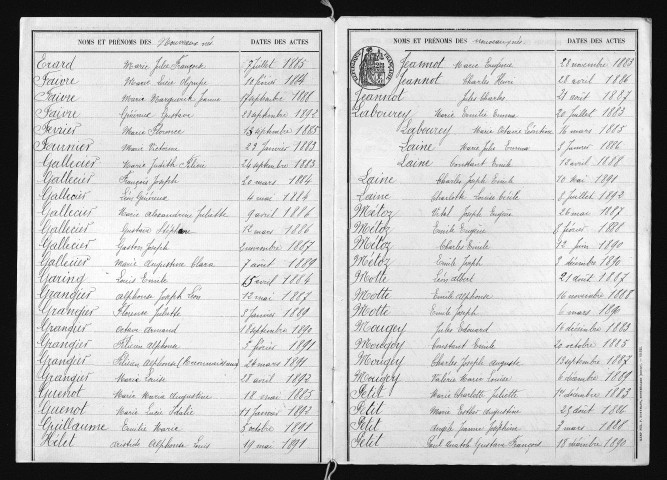 NOMS ET PRÉNOMS DES Nouveaux nés DATES DES ACTES
Erard Marie Jules François 7 juillet 1885
Faivre Marie Lucie 11 février 1884
Faivre Marie Marguerite Jeanne 17 septembre 1886
Faivre Gustave septembre 1892
Ferrier Marie Florence 15 septembre 1885
Fournier Marie Victorine 29 janvier 1883
Gallecier Marie Judith 24 septembre 1883
Gallecier François Joseph 20 mars 1884
Gallecier Léon 4 mai 1884
Gallecier Marie Alexandrine Juliette 9 avril 1886
Gallecier Gustave Stéphane 12 mars 1886
Gallecier Gaston Joseph 2 novembre 1887
Gallecier Marie Augustine Clara 7 août 1889
Garing Louis Emile 15 avril 1884
Grangier Alphonse Joseph Léon 12 mai 1887
Grangier Florence Juliette 8 janvier 1891
Grangier Octave Armand 18 septembre 1890
Grangier Alphonse 5 février 1891
Grangier Alphonse (Reconnaissance) 24 mars 1891
Grangier Marie Louise 28 avril 1892
Guenot Marie Maria Augustine 18 mai 1885
Guenot Marie Lucie Idalie 11 janvier 1892
Guillaume Emilie Marie 5 octobre 1891
Hilet Aristide Alphonse Louis 19 mai 1891
NOMS ET PRÉNOMS DES nouveaux nés DATES DES ACTES
Jeannot Marie Eugénie 28 novembre 1883
Jeannot Charles Henri 28 avril 1886
Jeannot Jules Charles 21 août 1887
Labourey Marie Emilie Emma 20 juillet 1883
Labourey Marie Octavie 16 mars 1885
Laine Marie Julie Emma 3 janvier 1886
Laine Constant Emile 12 avril 1888
Laine Charles Joseph Emile 10 mai 1891
Laine Charlotte Louise Cécile 8 juillet 1892
Métoz Vital Joseph Eugène 26 mai 1887
Métoz Emile Eugène 8 février 1888
Métoz Charles Emile 12 juin 1890
Métoz Emile Joseph 2 décembre 1890
Motte Léon Albert 21 août 1887
Motte Emile Alphonse 16 novembre 1888
Motte Emile Joseph 6 mars 1890
Mougey Jules Edouard 14 décembre 1883
Mougey Constant Emile 20 octobre 1885
Mougey Charles Joseph Auguste 13 septembre 1887
Mougey Valérie Marie Louise 6 décembre 1889
Petit Marie Charlotte Juliette 17 décembre 1883
Petit Marie Esther Augustine 25 août 1886
Petit Angèle Jeanne Joséphine 3 mars 1888
Petit Paul Gustave François 18 décembre 1890